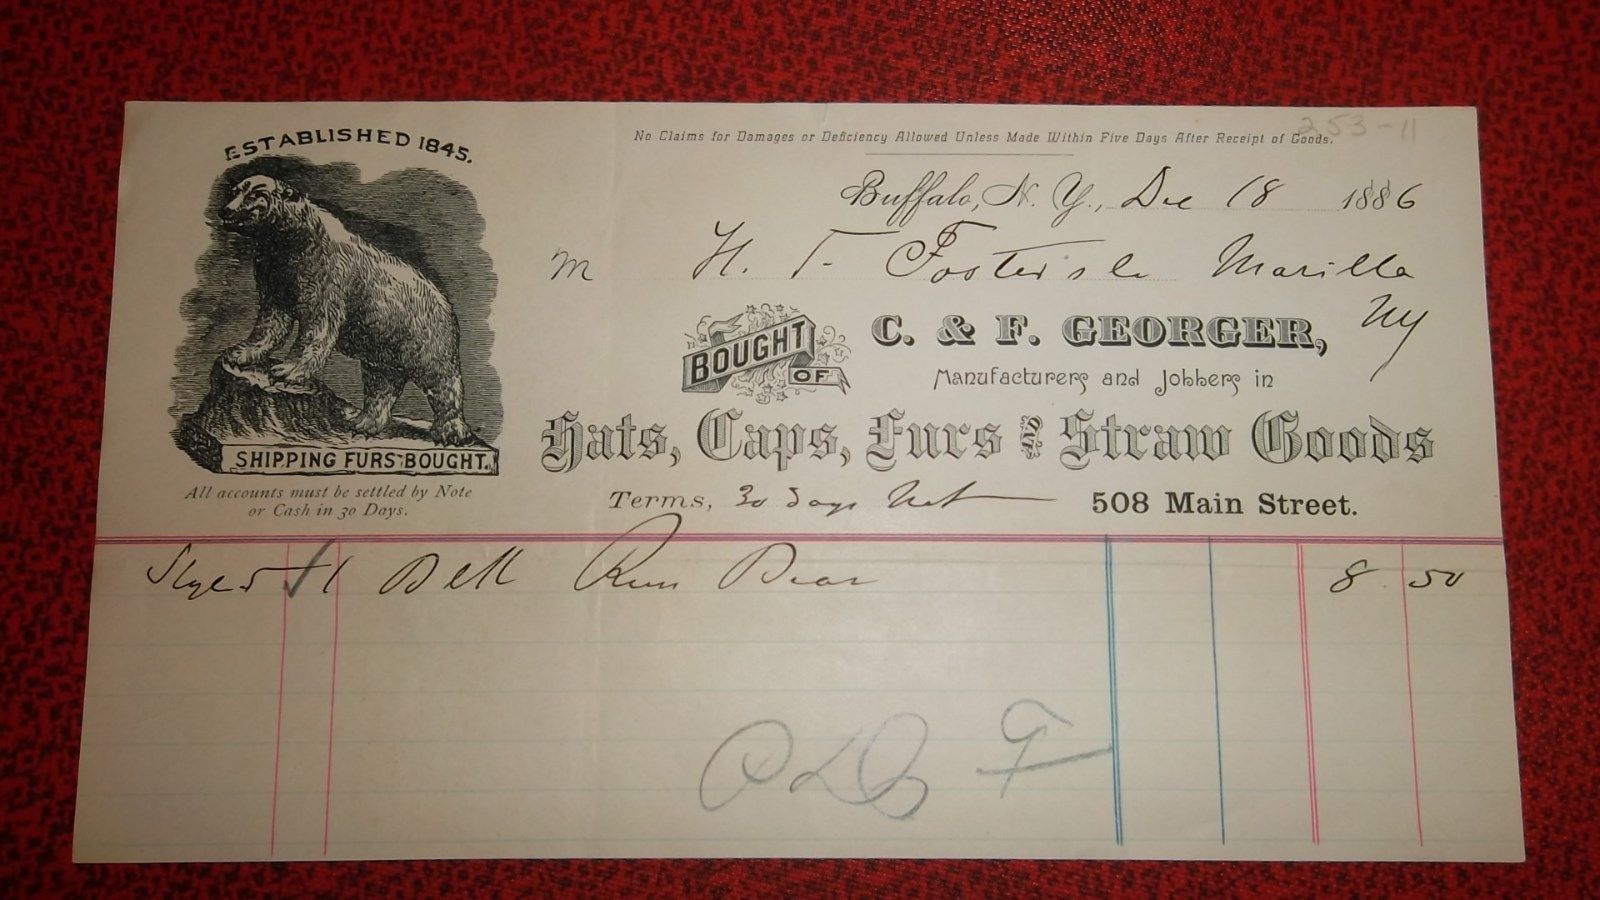 253-11
No Claims for Damages or Deficiency Allowed Unless Made Within Five Days After Receipt of Goods.
ESTABLISHED 1845.
Buffalo, N. Y., Dec 18 1886
M H. T. Foster Marilla
NY
BOUGHT OF
C. & F. GEORGER,
Manufacturers and Jobbers in
Hats, Caps, Furs AND Straw Goods
SHIPPING FURS BOUGHT.
All accounts must be settled by Note
or Cash in 30 Days.
Terms, 30 days Net 508 Main Street.
1 8 50